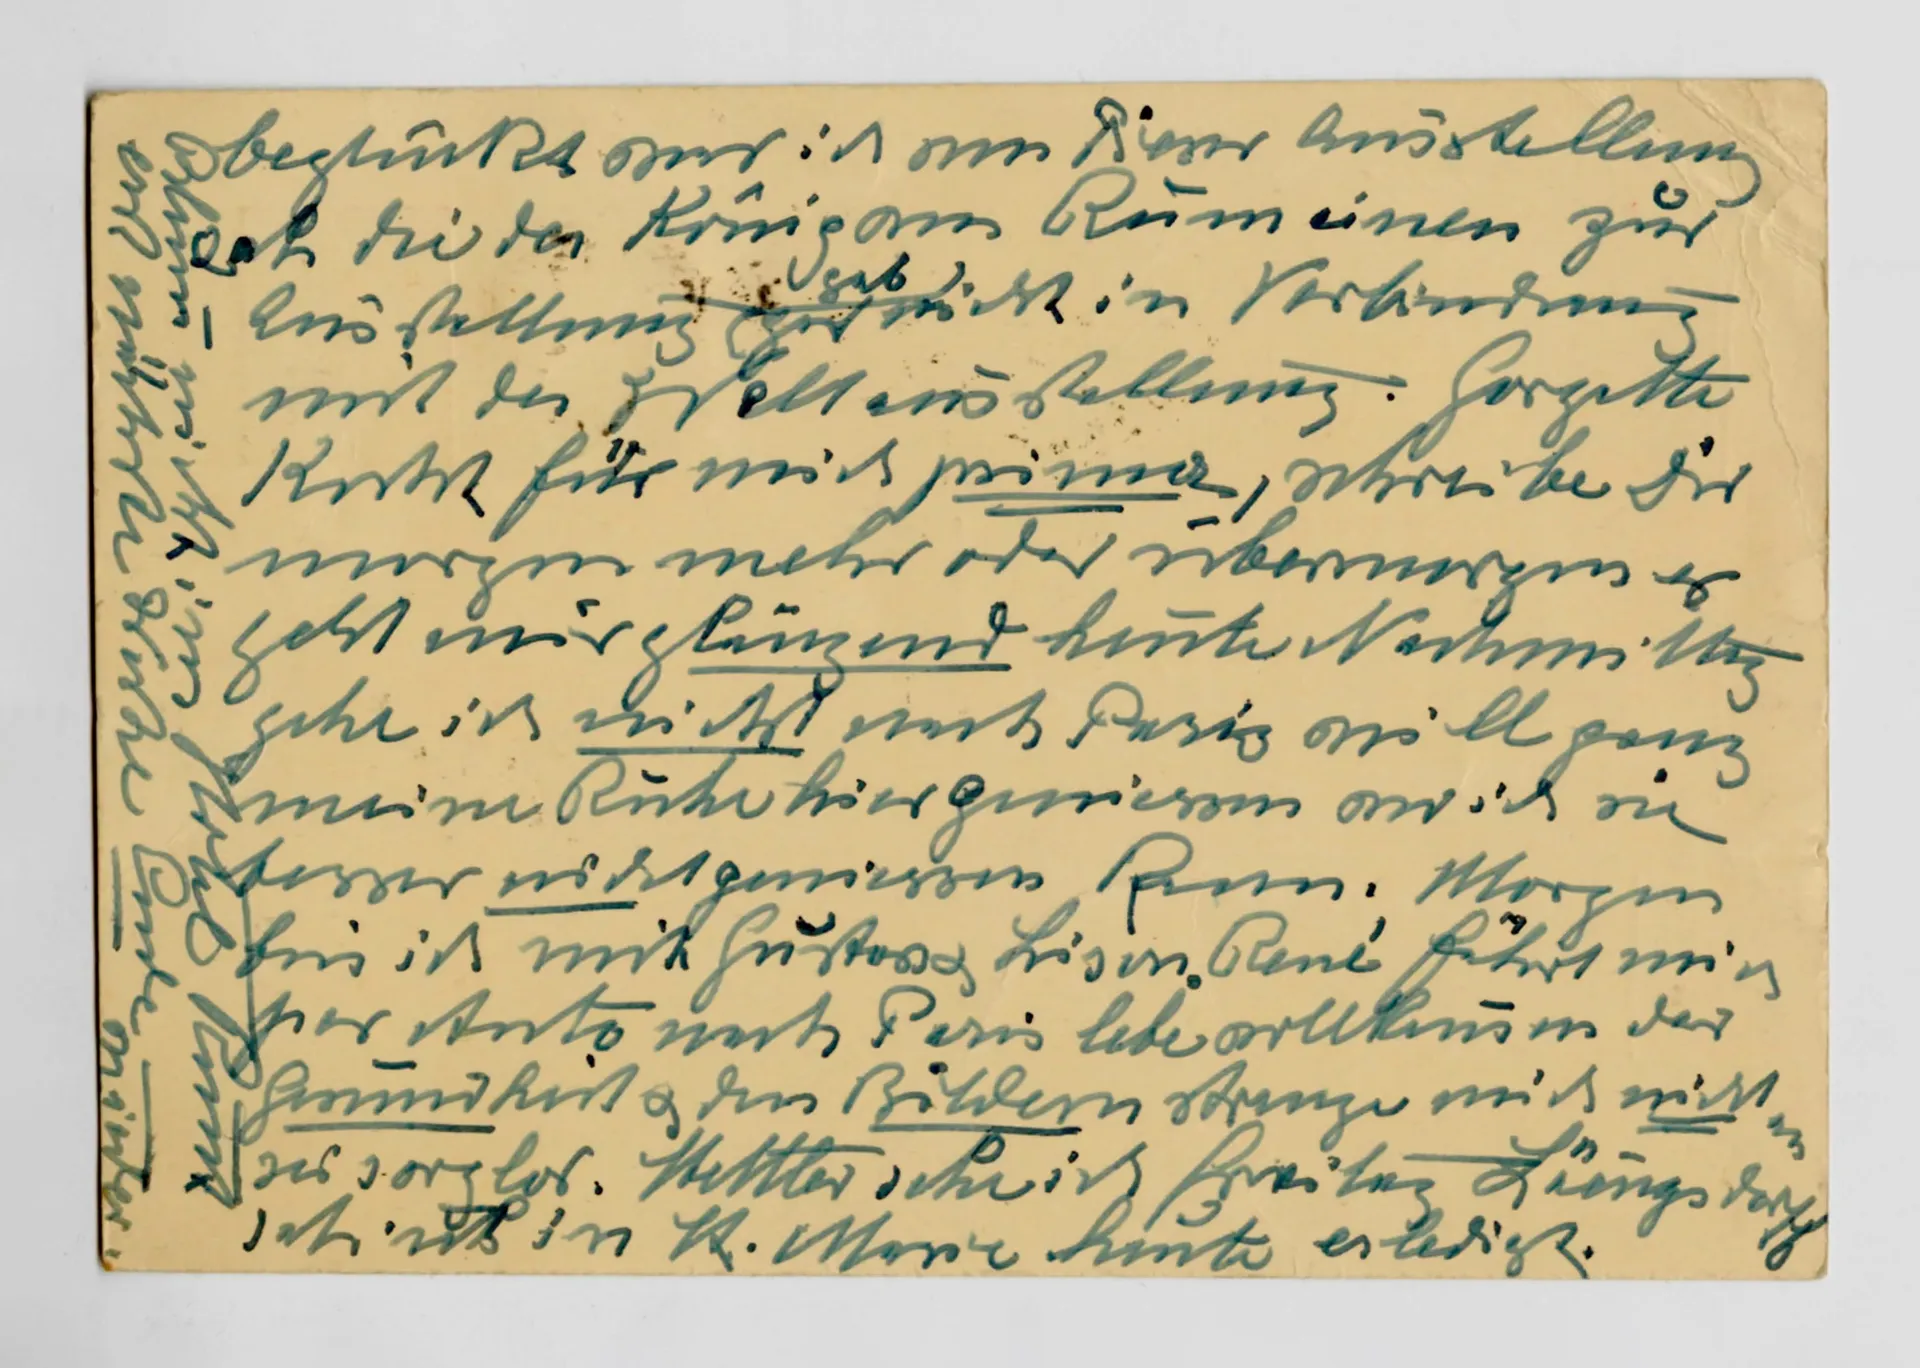 beglückt war ich von dieser Ausstellung
Daß die der König von Rumeinen zur
Ausstellung gab, nicht in Verbindung
mit der Weltausstellung. Gorgette
Kocht für mich prima, schreibe Dir
morgen mehr oder übermorgen es
geht mir glänzend heute Nachmittag
gehe ich nicht nach Paris will ganz
meine Ruhe hier geniessen wo ich sie
besser nicht geniessen kann. Morgen
bin ich mit Gustav & Lison. René fährt mich
per Auto nach Paris lebe vollkomen der
Gesundheit & den Bildern strenge mich nicht an
sei sorglos. Mettler sehe ich Freitag Läüngsdorff
ist in St. Marie heute erledigt.
nicht im